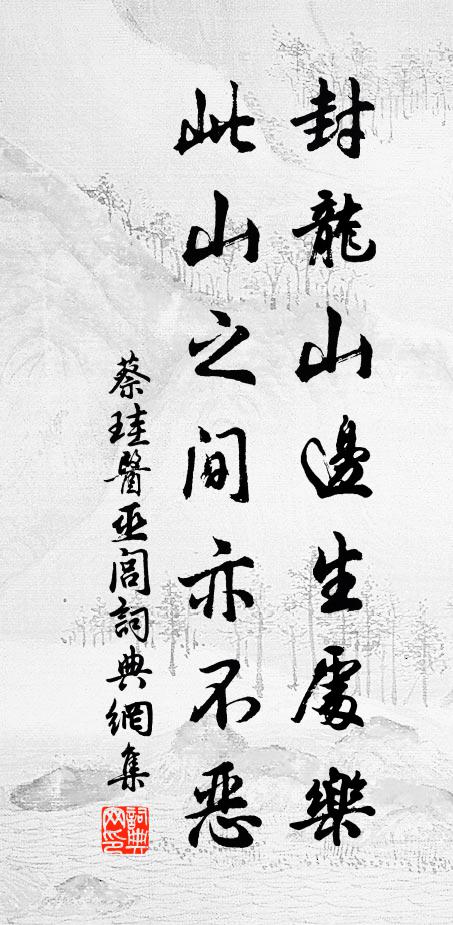 封龍山邊生處樂
此山之間亦不惡
蔡珪醫巫閭詞典網集
詞典網印